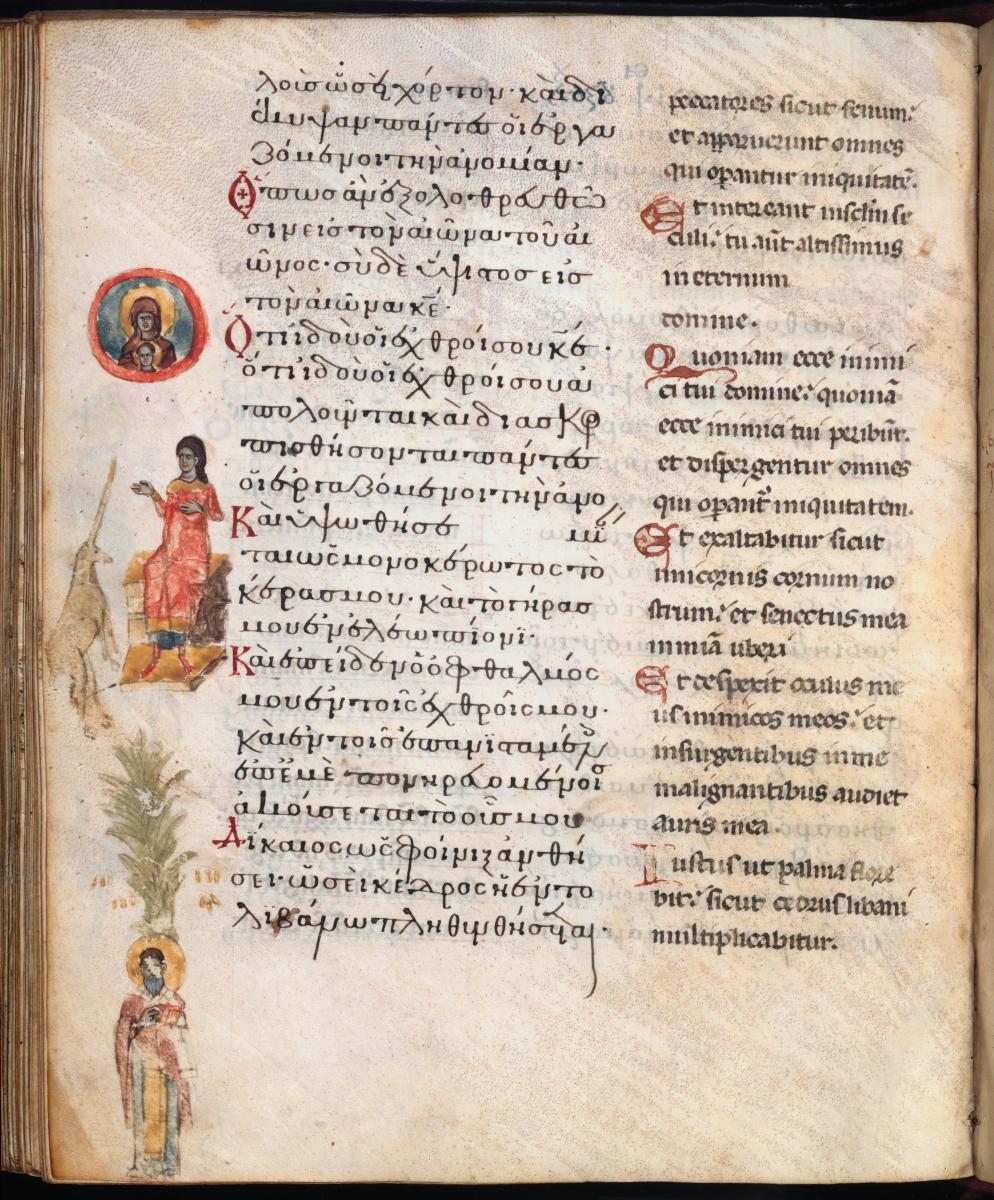 λοὶ ὡσεὶ χόρτον· καὶ δι
έκυψαν πάντες οἱ ἐργα
ζόμενοι τὴν ἀνομίαν·
Ὅπως ἂν ἐξολοθρευθῶ
σιν εἰς τὸν αἰῶνα τοῦ αἰ
ῶνος· σὺ δὲ ὕψιστος εἰς
τὸν αἰῶνα κε̅·
Ὅτι ἰδοὺ οἱ ἐχθροί σου κε̅·
ὅτι ἰδοὺ οἱ ἐχθροί σου ἀ
πολοῦνται καὶ διασκορ
πισθήσονται πάντες
οἱ ἐργαζόμενοι τὴν ἀνο
μί
Καὶ ὑψωθήσε
ται ὡς μονοκέρωτος τὸ
κέρας μου· καὶ τὸ γήρας
μου ἐν ἐλέω πίονι·
Καὶ ἐπεῖδεν ὁ ὀφθαλμός
μου ἐν τοῖς ἐχθροῖς μου·
καὶ ἐν τοῖς ἐπανισταμέν
ἐπ ἐμὲ πονηρευομένοις
ἀκούσεται τὸ οὖς μου
Δίκαιος ὡς φοίνιξ ἀνθή
σει ὡσεὶ κέδρος ἡ ἐν τῷ
λιβάνω πληθυνθήσεται·
peccatores sicut fenum:
et apparuerunt omnes
qui operantur iniquitatē.
Et intereant in sclm̄ se
culi: tu aūt altissimus
in eternum
domine.
Quoniam ecce inimi
ci tui domine: quoniā
ecce inimici tui peribūt.
et dispergentur omnes
qui operant᷑ iniquitatem.
Et exaltabitur sicut
unicornis cornum no
strum: et senectus mea
in miā uberi
Et despexit oculus me
us inimicos meos: et
insurgentibus in me
malignantibus audiet
auris mea.
Iustus ut palma flore
bit: sicut cedrus libani
multiplicabitur.